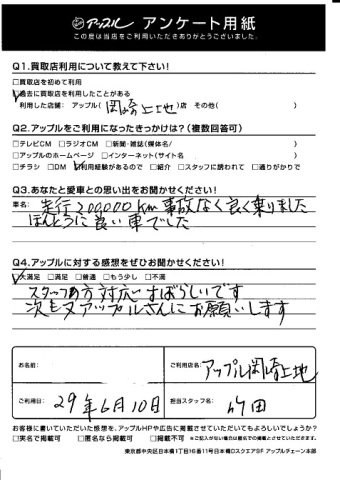 アップル アンケート用紙
この度は当店をご利用いただきありがとうございました。
Q1.買取店利用について教えて下さい!
□買取店を初めて利用
☑過去に買取店を利用したことがある
利用した店舗: アップル( 岡崎上地 )店 その他( )
Q2.アップルをご利用になったきっかけは?(複数回答可)
□テレビCM □ラジオCM □新聞・雑誌(媒体名/ )
□アップルのホームページ □インターネット(サイト名 )
□チラシ □DM ☑利用経験があるので □紹介 □スタッフに誘われて □通りがかりで
Q3.あなたと愛車との思い出をお聞かせください!
車名: 走行200,000Km 事故なく良く乗りました
ほんとうに良い車でした
Q4.アップルに対する感想をぜひお聞かせください!
☑大満足 □満足 □普通 □もう少し □不満
スタッフの方対応すばらしいです
次も又アップルさんにお願いします
お名前:
ご利用店名: アップル岡崎上地
ご利用日: 29年6月10日
担当スタッフ名: 竹田
お客様に書いていただいた感想を、アップルHPや広告に掲載させていただいてもよろしいでしょうか?
□実名で掲載可 □匿名なら掲載可 □掲載不可 ※ご記入がない場合は匿名での掲載とさせていただきます。
東京都中央区日本橋1丁目16番11号日本橋DスクエアSF アップルチェーン本部